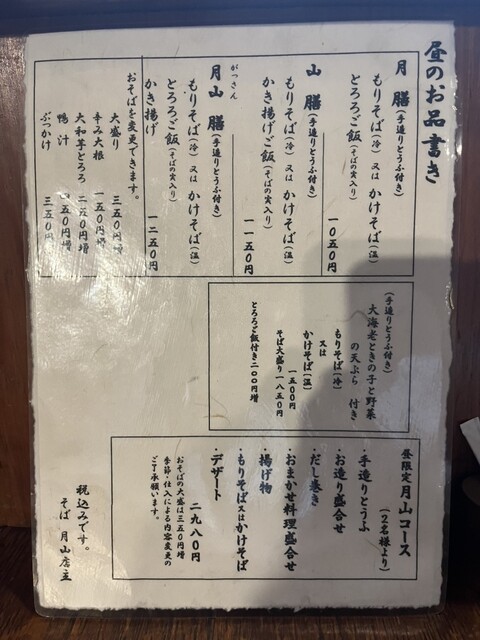 昼のお品書き
月 膳(手造りとうふ付き)
もりそば(冷) 又は かけそば(温)
とろろご飯(そばの実入り)
一〇五〇円
山 膳(手造りとうふ付き)
もりそば(冷) 又は かけそば(温)
かき揚げご飯(そばの実入り)
一一五〇円
がっさん
月山 膳(手造りとうふ付き)
もりそば(冷) 又は かけそば(温)
とろろご飯(そばの実入り)
かき揚げ
一二五〇円
おそばを変更できます。
大盛り 三五〇円増
辛み大根 一五〇円増
大和芋とろろ 二五〇円増
鴨汁 四五〇円増
ぶっかけ 三五〇円
(手造りとうふ付き)
大海老ときの子と野菜
の天ぷら 付き
もりそば(冷)
又は
かけそば(温)
一五〇〇円
そば大盛り一八五〇円
とろろご飯付き二〇〇円増
昼限定 月山コース
(2名様より)
・手造りとうふ
・お造り盛合せ
・だし巻き
・おまかせ料理盛合せ
・揚げ物
・もりそば又はかけそば
デザート
二九八〇円
おそばの大盛は三五〇円増
季節・仕入による内容変更の
ご了承願います。
税込みです。
そば 月山店主